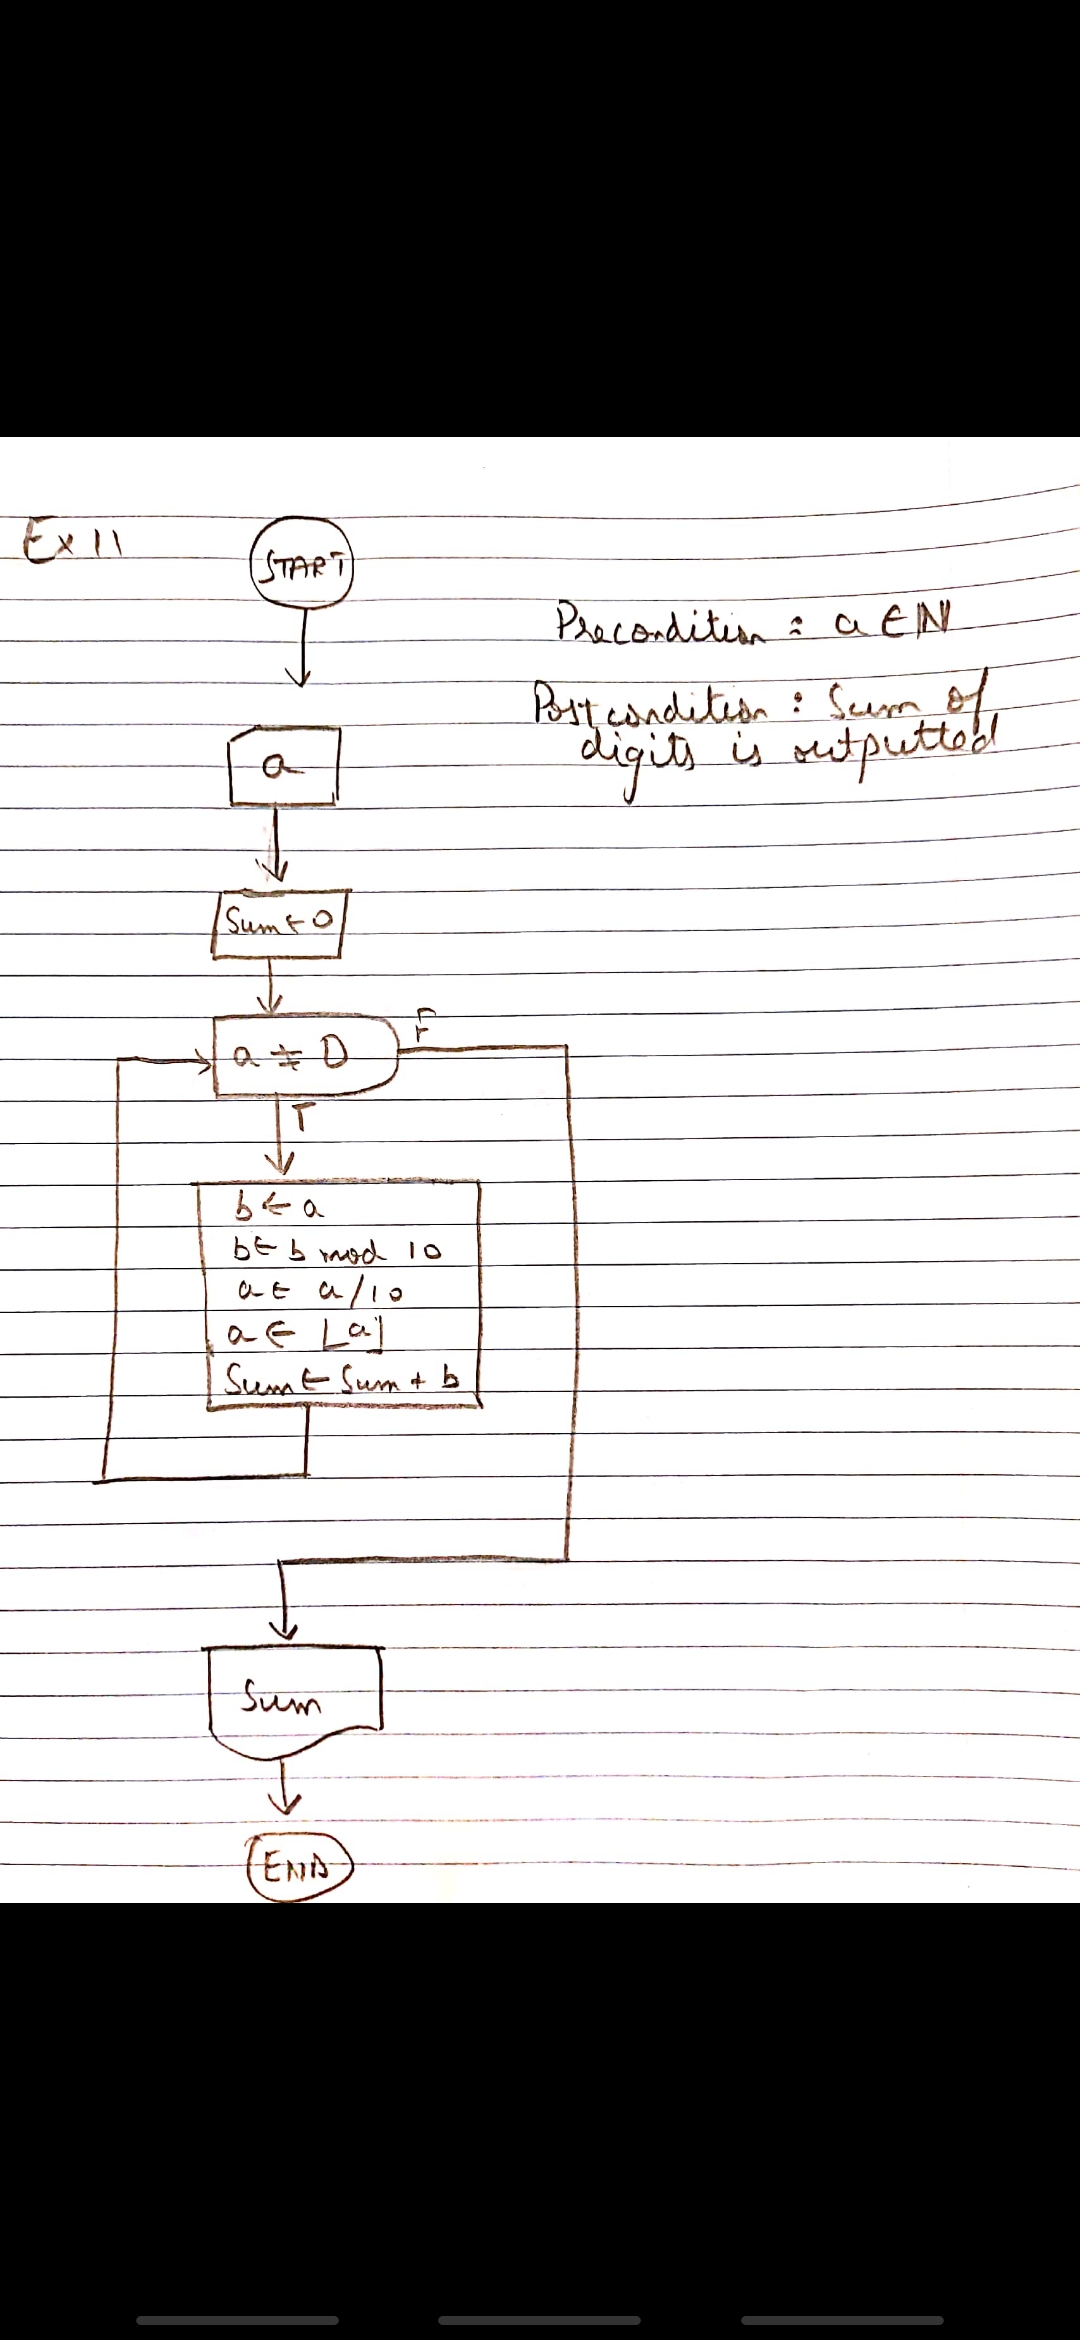 Ex 11
START
Precondition : a ∈ ℕ
Postcondition : Sum of
digits is outputted
a
Sum ← 0
a ≠ 0
F
T
b ← a
b ← b mod 10
a ← a/10
a ← ⌊a⌋
Sum ← Sum + b
Sum
END